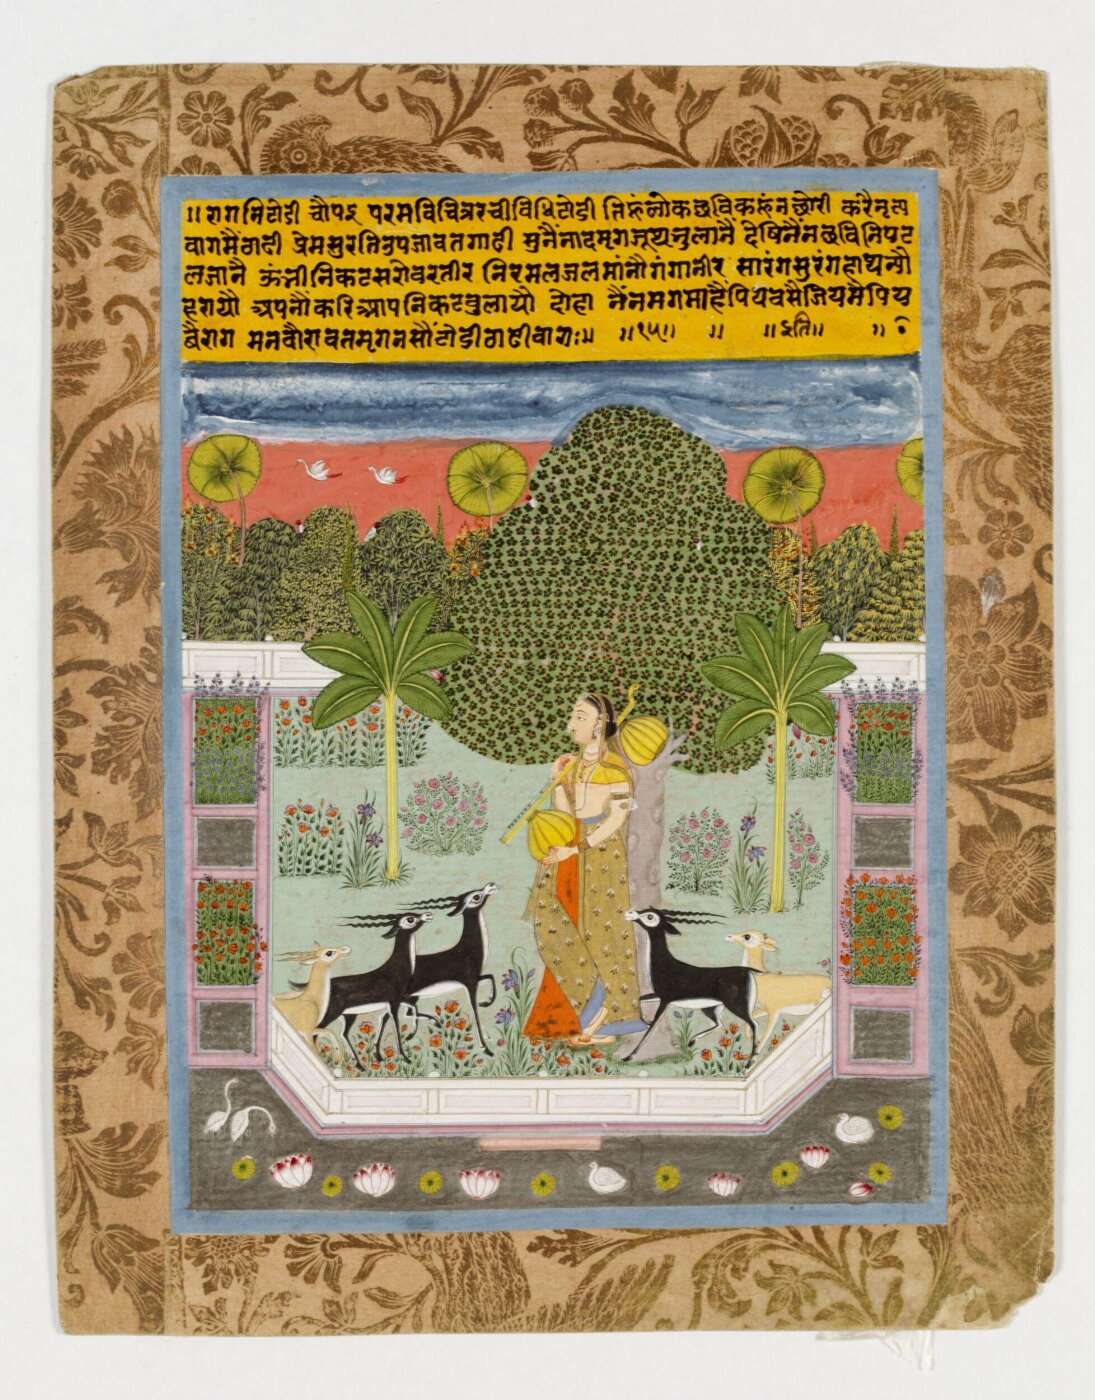 ॥ रागनिटोडी चौपइ परमविचित्ररचीविधिटोडी तिहूंलोकछविकहूंनछोरी करैनृत्य
वागमैंठाढी प्रेमसुरतिनृपजावतगाढी सुनैंनादमृगजूथभुलानैं देषिनैंनछविनिपट
लजानै ऊंनीनिकटसरोवरतीर निरमलजलमांनौगंगानीर सारंगसुरंगहाथन्यौ
हरायौ अपनौंकरिआपनिकटवुलायौ दोहा नैंनमगमाहैपियवसैजियमैपिय
वैराग मनवौरावतमृगनसौंटोडीठाढीवाग॥ ॥१५॥ ॥ ॥इति॥ ॥